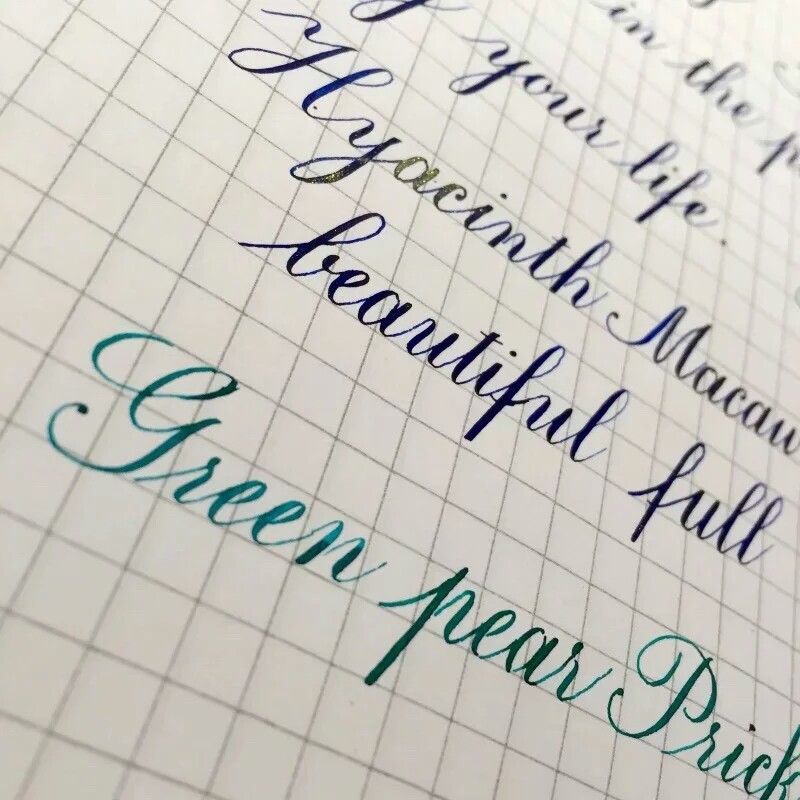 in the
your life.
Hyacinth Macaw
beautiful full
Green pear Prick